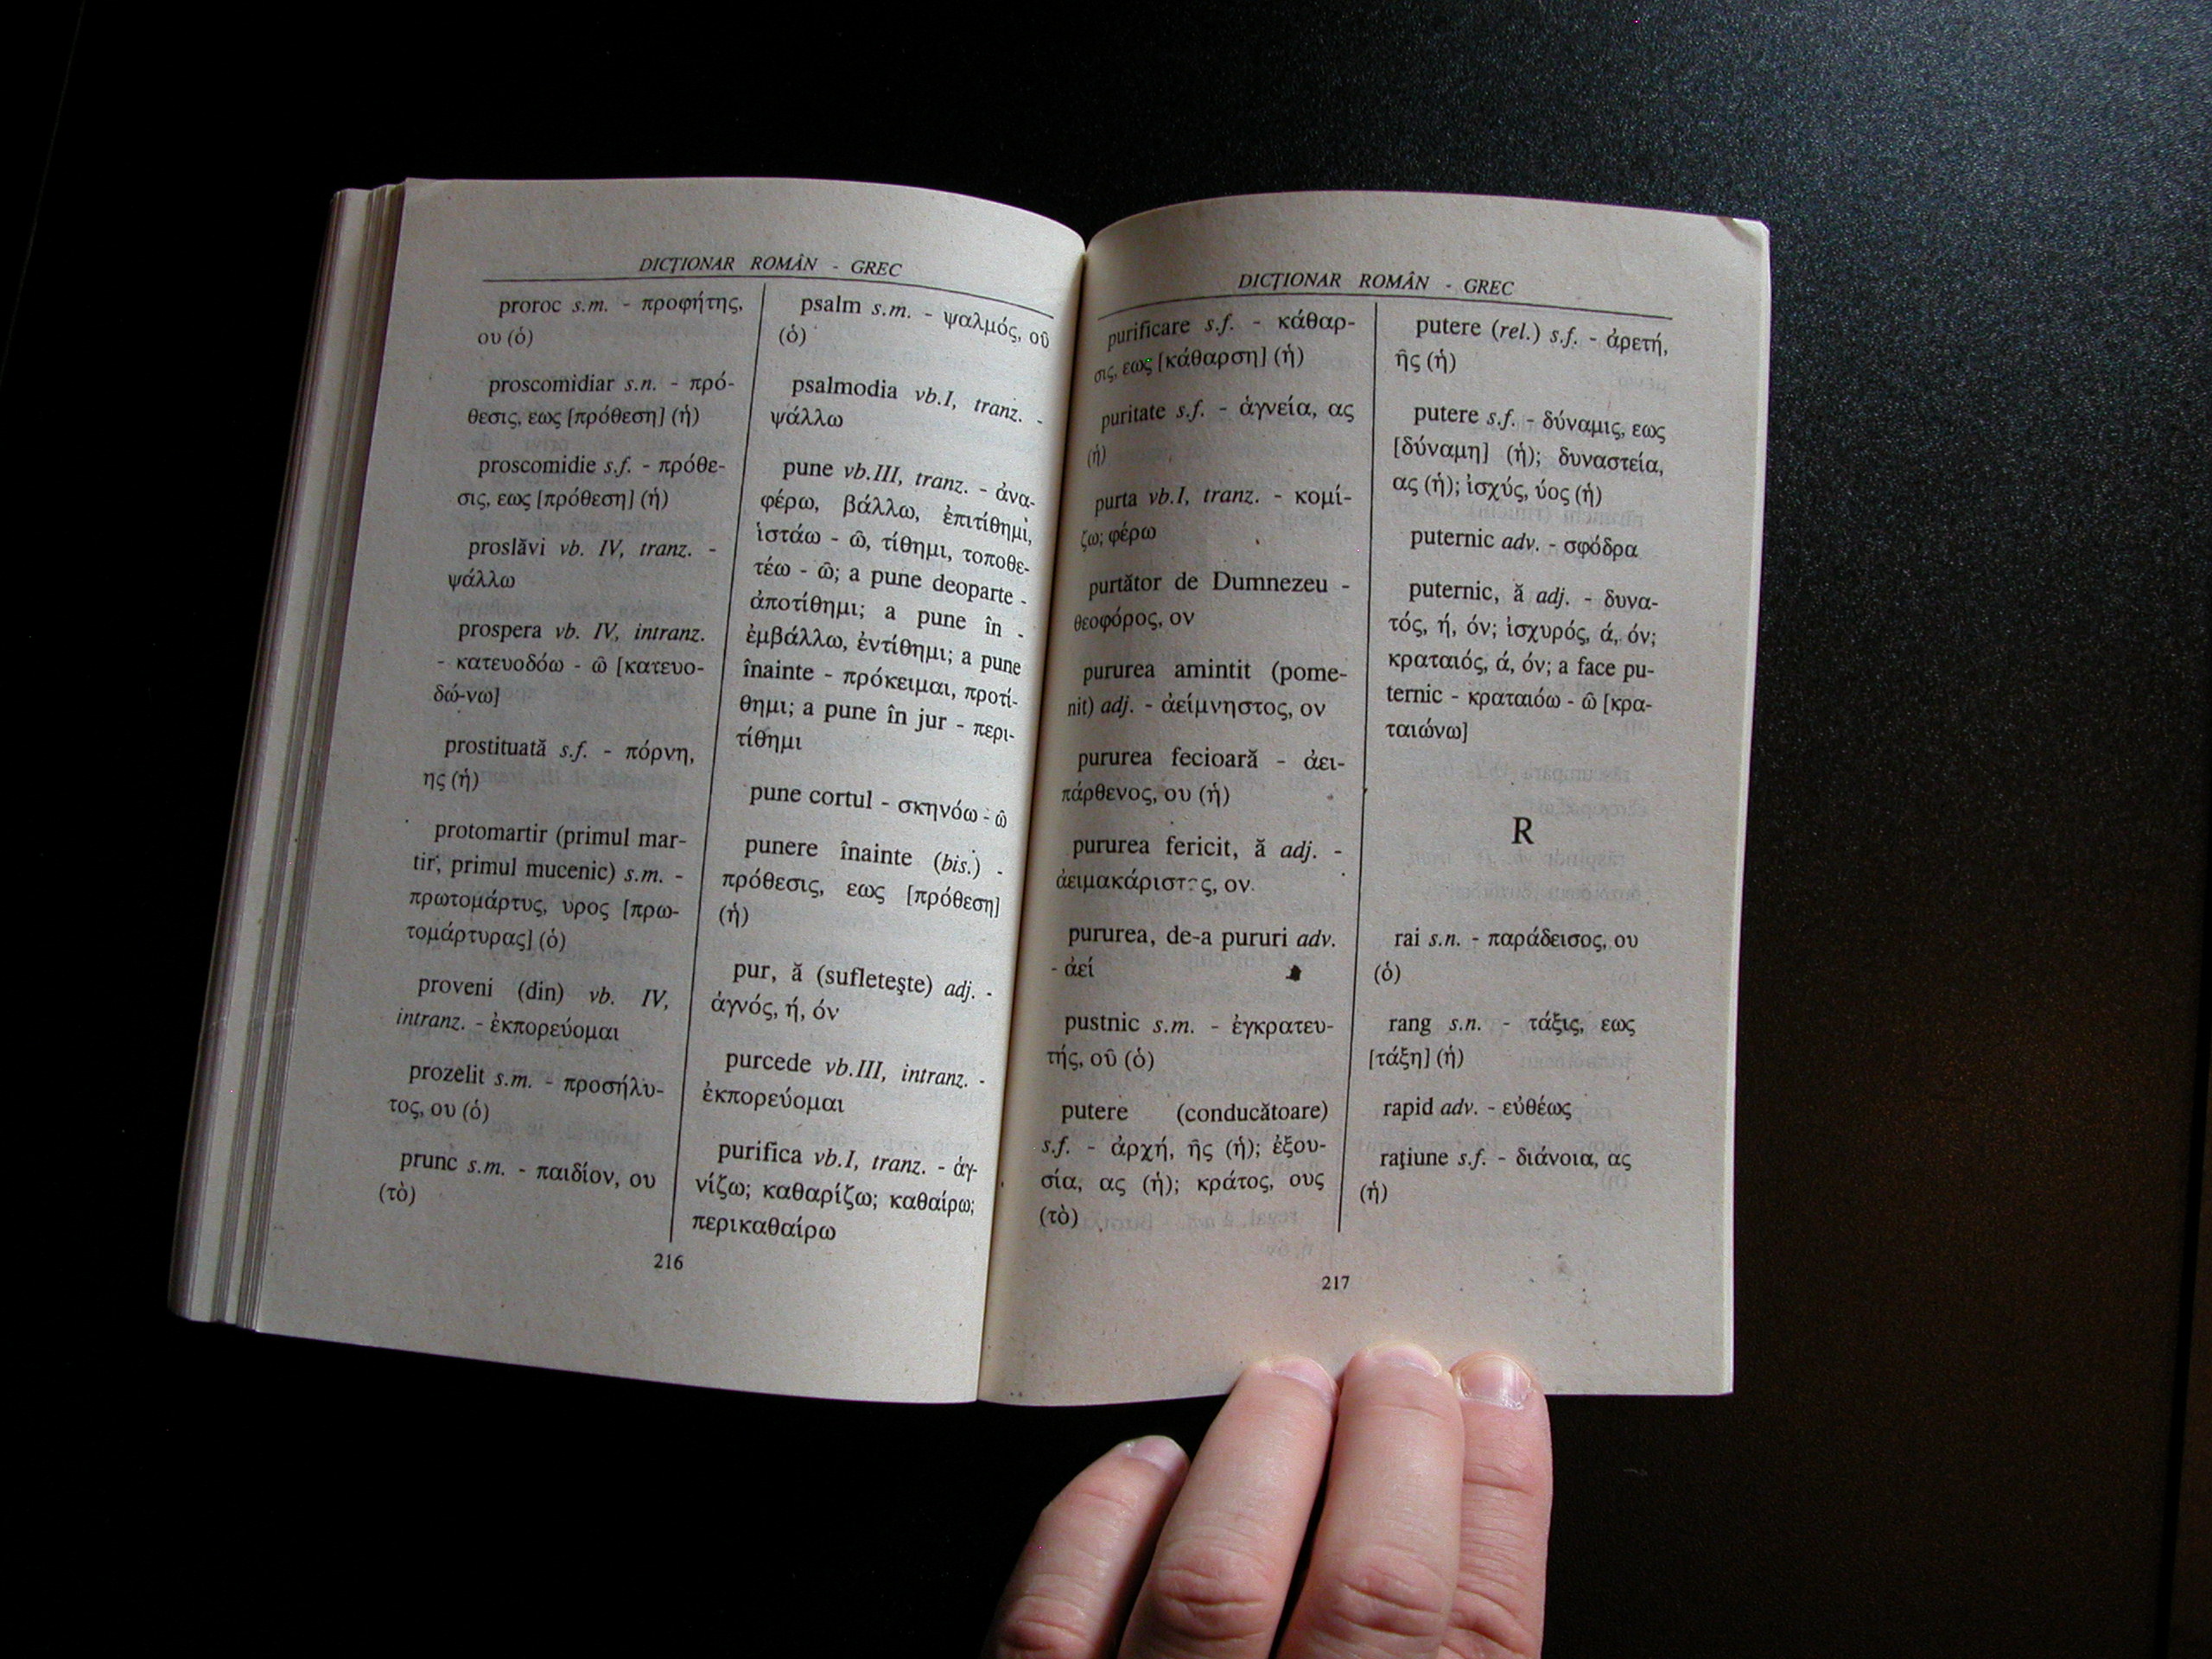 DICŢIONAR ROMÂN - GREC
proroc s.m. - προφήτης,
ου (ὁ)
proscomidiar s.n. - πρό-
θεσις, εως [πρόθεση] (ἡ)
proscomidie s.f. - πρόθε-
σις, εως [πρόθεση] (ἡ)
proslăvi vb. IV, tranz. -
ψάλλω
prospera vb. IV, intranz.
- κατευοδόω - ῶ [κατευο-
δώ-νω]
prostituată s.f. - πόρνη,
ης (ἡ)
protomartir (primul mar-
tir, primul mucenic) s.m. -
πρωτομάρτυς, υρος [πρω-
τομάρτυρας] (ὁ)
proveni (din) vb. IV,
intranz. - ἐκπορεύομαι
prozelit s.m. - προσήλυ-
τος, ου (ὁ)
prunc s.m. - παιδίον, ου
(τὸ)
psalm s.m. - ψαλμός, οῦ
(ὁ)
psalmodia vb.I, tranz. -
ψάλλω
pune vb.III, tranz. - ἀνα-
φέρω, βάλλω, ἐπιτίθημι,
ἱστάω - ῶ, τίθημι, τοποθε-
τέω - ῶ; a pune deoparte -
ἀποτίθημι; a pune în -
ἐμβάλλω, ἐντίθημι; a pune
înainte - πρόκειμαι, προτί-
θημι; a pune în jur - περι-
τίθημι
pune cortul - σκηνόω - ῶ
punere înainte (bis.) -
πρόθεσις, εως [πρόθεση]
(ἡ)
pur, ă (sufleteşte) adj. -
ἁγνός, ή, όν
purcede vb.III, intranz. -
ἐκπορεύομαι
purifica vb.I, tranz. - ἁγ-
νίζω; καθαρίζω; καθαίρω;
περικαθαίρω
216
DICŢIONAR ROMÂN - GREC
purificare s.f. - κάθαρ-
σις, εως [κάθαρση] (ἡ)
puritate s.f. - ἁγνεία, ας
(ἡ)
purta vb.I, tranz. - κομί-
ζω; φέρω
purtător de Dumnezeu -
θεοφόρος, ον
pururea amintit (pome-
nit) adj. - ἀείμνηστος, ον
pururea fecioară - ἀει-
πάρθενος, ου (ἡ)
pururea fericit, ă adj. -
ἀειμακάριστος, ον.
pururea, de-a pururi adv.
- ἀεί
pustnic s.m. - ἐγκρατευ-
τής, οῦ (ὁ)
putere (conducătoare)
s.f. - ἀρχή, ῆς (ἡ); ἐξου-
σία, ας (ἡ); κράτος, ους
(τὸ)
putere (rel.) s.f. - ἀρετή,
ῆς (ἡ)
putere s.f. - δύναμις, εως
[δύναμη] (ἡ); δυναστεία,
ας (ἡ); ἰσχύς, ύος (ἡ)
puternic adv. - σφόδρα
puternic, ă adj. - δυνα-
τός, ή, όν; ἰσχυρός, ά, όν;
κραταιός, ά, όν; a face pu-
ternic - κραταιόω - ῶ [κρα-
ταιώνω]
R
rai s.n. - παράδεισος, ου
(ὁ)
rang s.n. - τάξις, εως
[τάξη] (ἡ)
rapid adv. - εὐθέως
raţiune s.f. - διάνοια, ας
(ἡ)
217